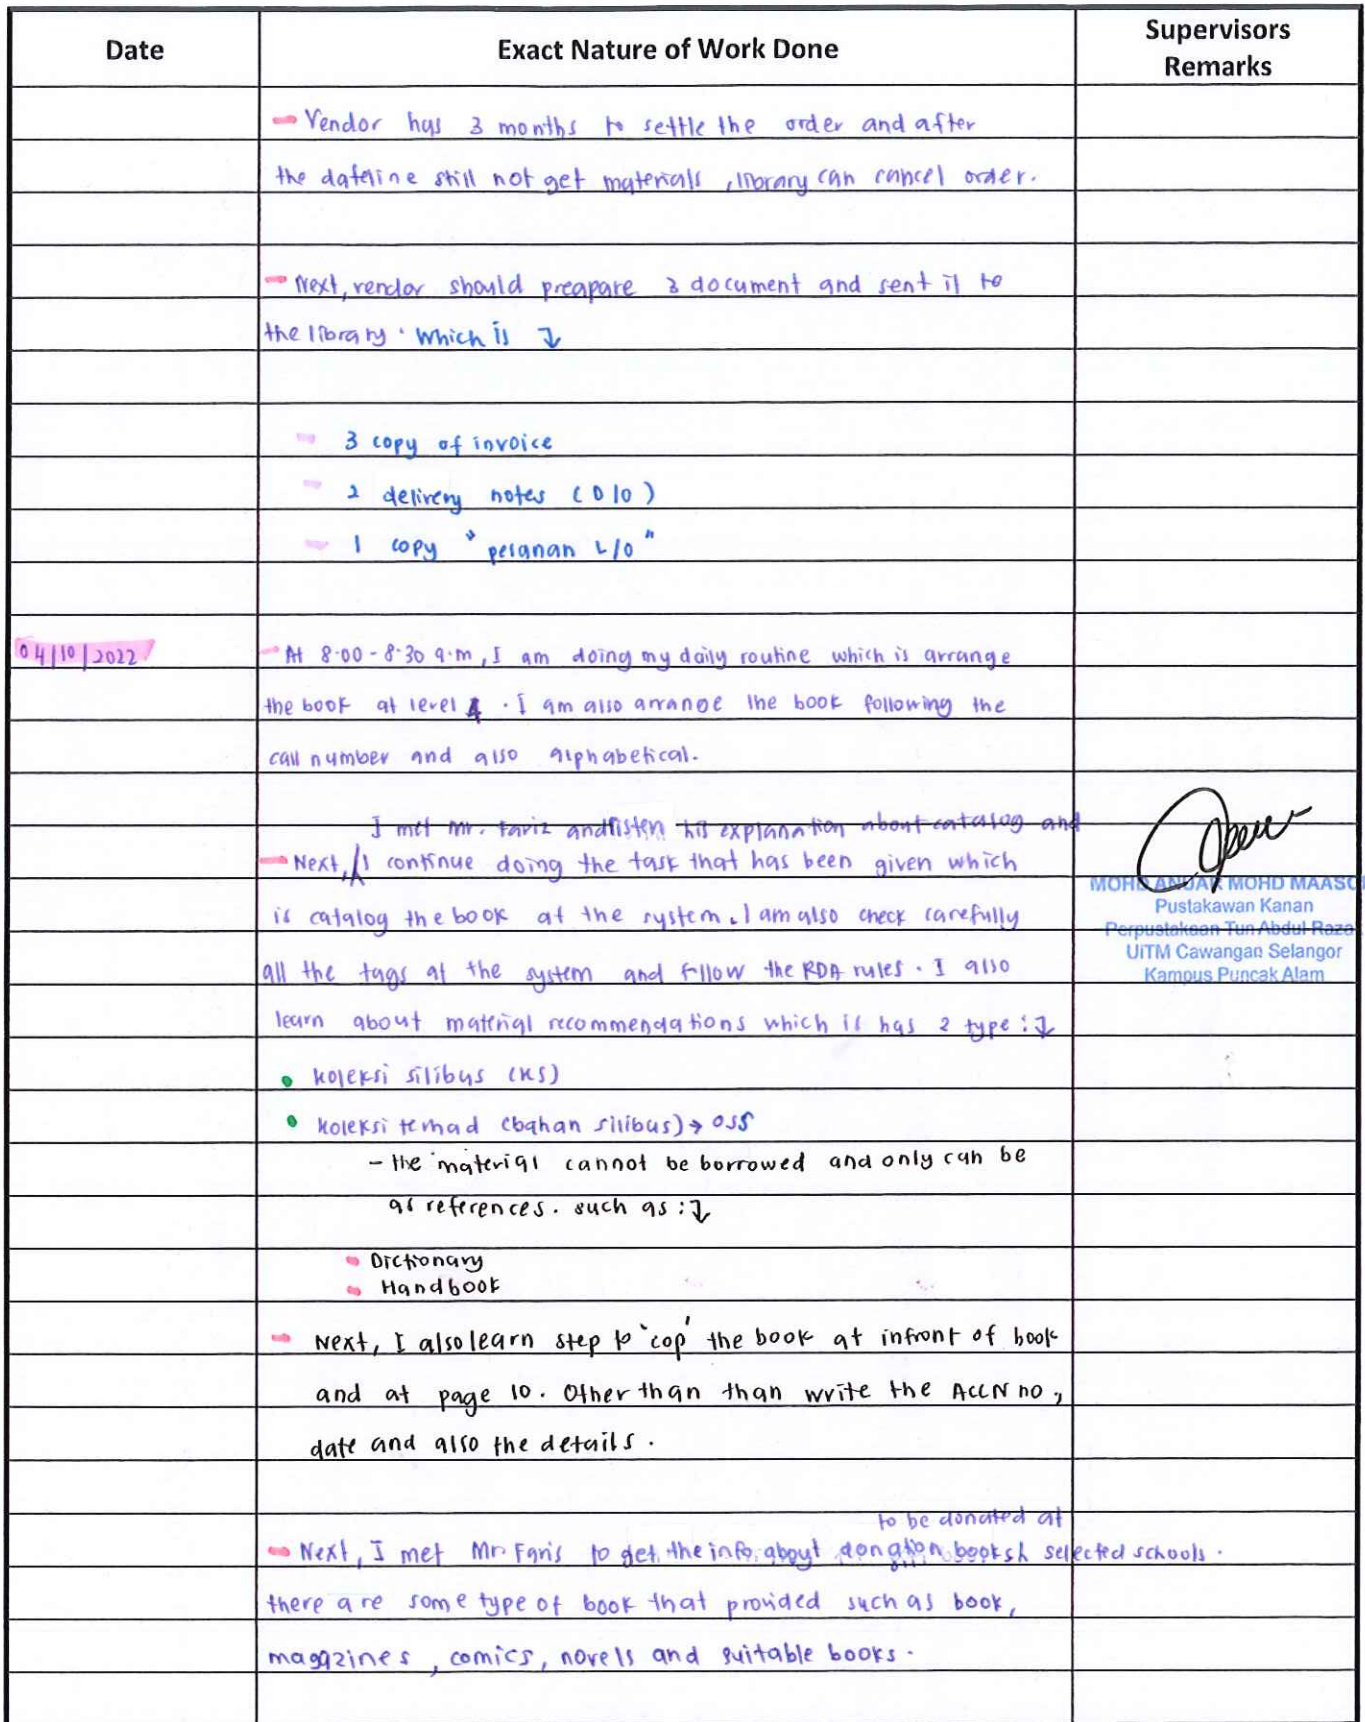 Date
Exact Nature of Work Done
Supervisors
Remarks
Vendor has 3 months to settle the order and after
the dateline still not get materials, library can cancel order.
Next, vendor should preapare 3 document and sent it to
the library. Which is ↴
3 copy of invoice
2 delivery notes (D/O)
1 copy "pesanan L/O"
04/10/2022
At 8.00 - 8.30 a.m, I am doing my daily routine which is arrange
the book at level 4. I am also arrange the book following the
call number and also alphabetical.
I met Mr. Fariz and listen his explanation about catalog and
Next, I continue doing the task that has been given which
is catalog the book at the system. I am also check carefully
all the tags at the system and fllow the RDA rules. I also
learn about material recommendations which is has 2 type : ↴
• Koleksi silibus (KS)
• Koleksi terhad (bahan silibus) → OSS
- the material cannot be borrowed and only can be
as references. such as : ↴
Dictionary
Handbook
Next, I also learn step to 'cop' the book at infront of book
and at page 10. Other than than write the ACCN no,
date and also the details.
to be donated at
Next, I met Mr Faris to get the info about donation books selected schools.
there are some type of book that provided such as book,
magazines, comics, novels and suitable books.
MOHD ANUAR MOHD MAASO
Pustakawan Kanan
Perpustakaan Tun Abdul Raza
UiTM Cawangan Selangor
Kampus Puncak Alam